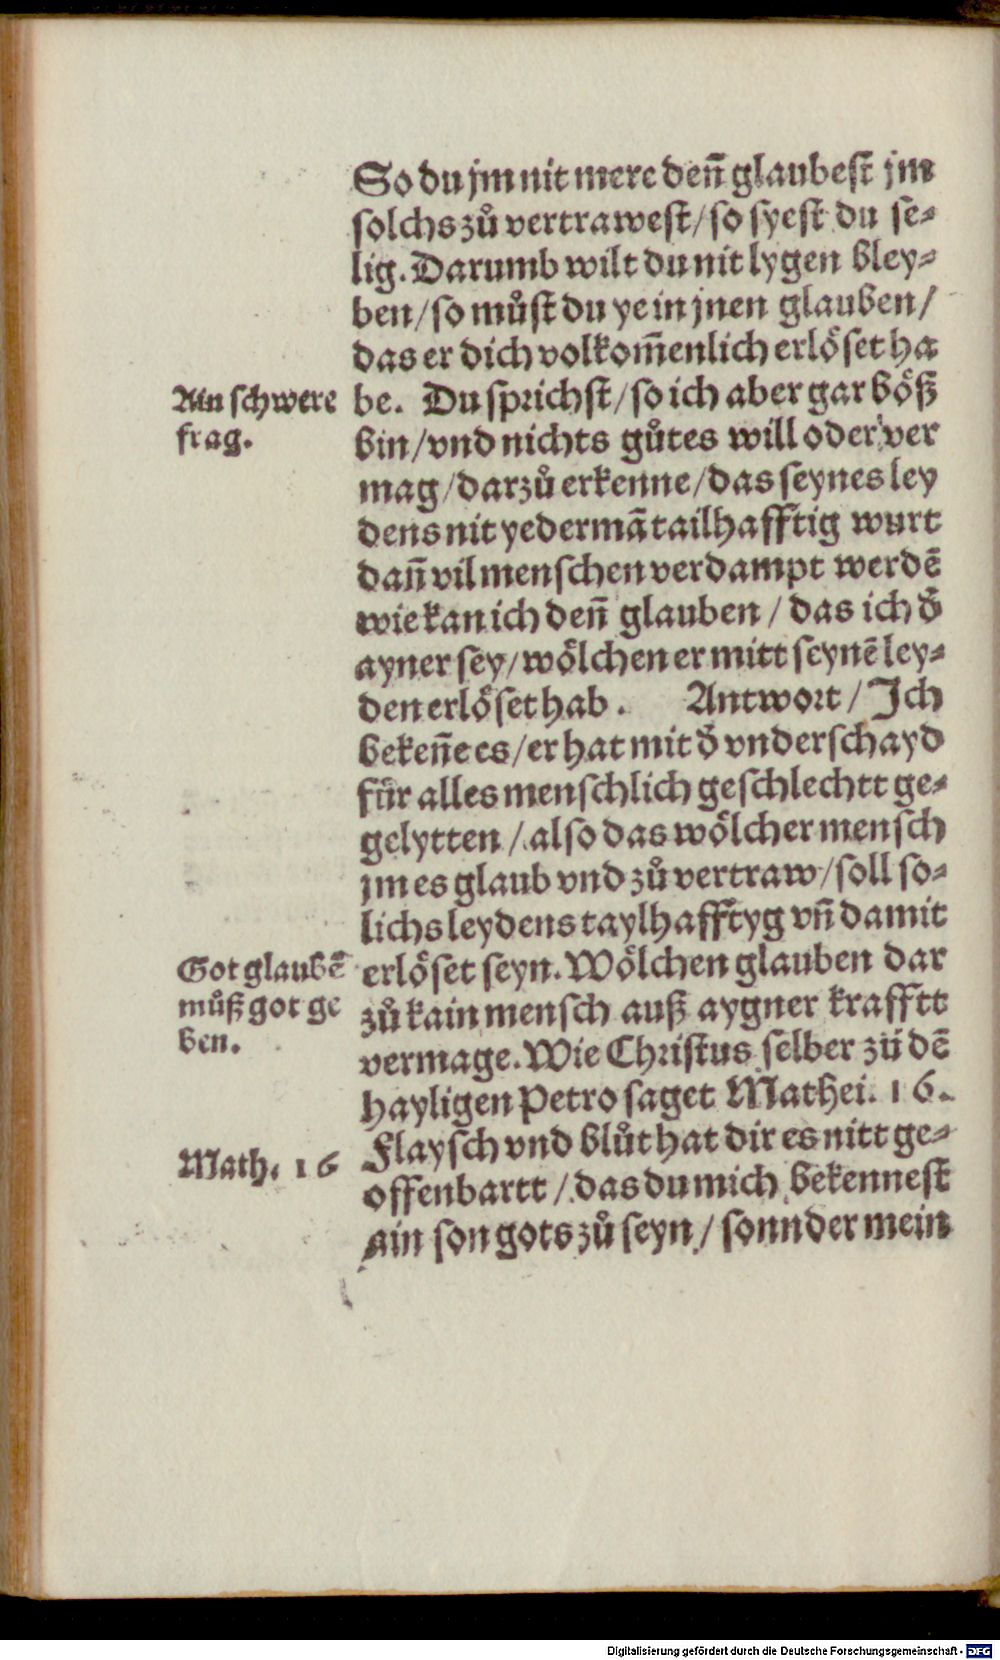 So du jm nit mere den̄ glaubest jm
solchs zů vertrawest / so syest du se⸗
lig. Darumb wilt du nit lygen bley⸗
ben / so můst du ye in jnen glauben /
das er dich volkom̄enlich erlöset ha
Ain schwere
frag.
be. Du sprichst / so ich aber gar böß
bin / vnd nichts gůtes will oder ver
mag / darzů erkenne / das seynes ley
dens nit yedermā tailhafftig wurt
dan̄ vil menschen verdampt werdē
wie kan ich den̄ glauben / das ich d̄
ayner sey / wölchen er mitt seynē ley⸗
den erlöset hab. Antwort / Ich
beken̄e es / er hat mit d̄ vnderschayd
für alles menschlich geschlechtt ge⸗
gelytten / also das wölcher mensch
jm es glaub vnd zů vertraw / soll so⸗
lichs leydens taylhafftyg vn̄ damit
Got glaubē
můß got ge
ben.
erlöset seyn. Wölchen glauben dar
zů kain mensch auß aygner krafftt
vermage. Wie Christus selber zů dē
hayligen Petro saget Mathei. 16.
Math. 16
Flaysch vnd blůt hat dir es nitt ge⸗
offenbartt / das du mich bekennest
ain son gots zů seyn / sonnder mein
Digitalisierung gefördert durch die Deutsche Forschungsgemeinschaft - DFG